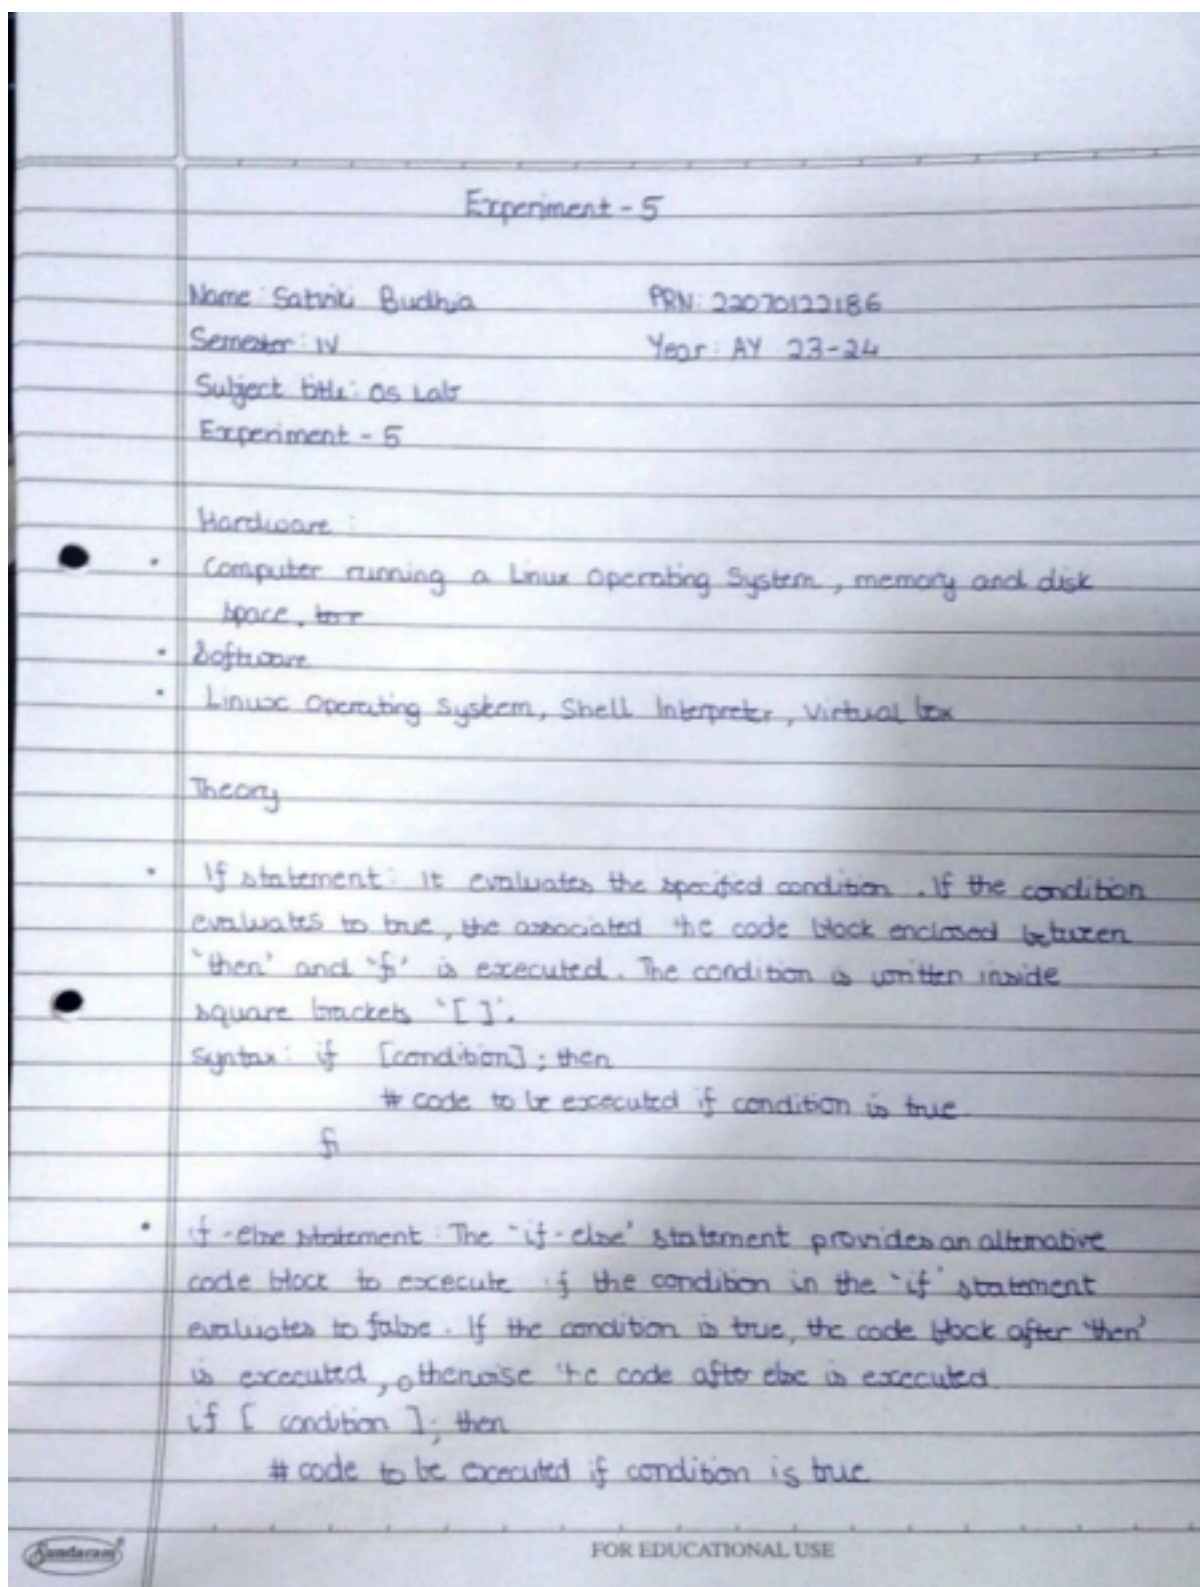 Experiment - 5
Name: Satviki Budhia PRN: 22070122186
Semester: IV Year: AY 23-24
Subject title: OS Lab
Experiment - 5
Hardware :
• Computer running a Linux Operating System, memory and disk
space.
• Software
• Linux Operating System, Shell Interpreter, Virtual box
Theory
• If statement: It evaluates the specified condition. If the condition
evaluates to true, the associated the code block enclosed between
'then' and 'fi' is executed. The condition is written inside
square brackets '[ ]'.
Syntax: if [condition]; then
# code to be executed if condition is true
fi
• if-else statement: The 'if-else' statement provides an alternative
code block to execute if the condition in the 'if' statement
evaluates to false. If the condition is true, the code block after 'then'
is executed, otherwise the code after else is executed.
if [ condition ]; then
# code to be executed if condition is true
Sundaram
FOR EDUCATIONAL USE